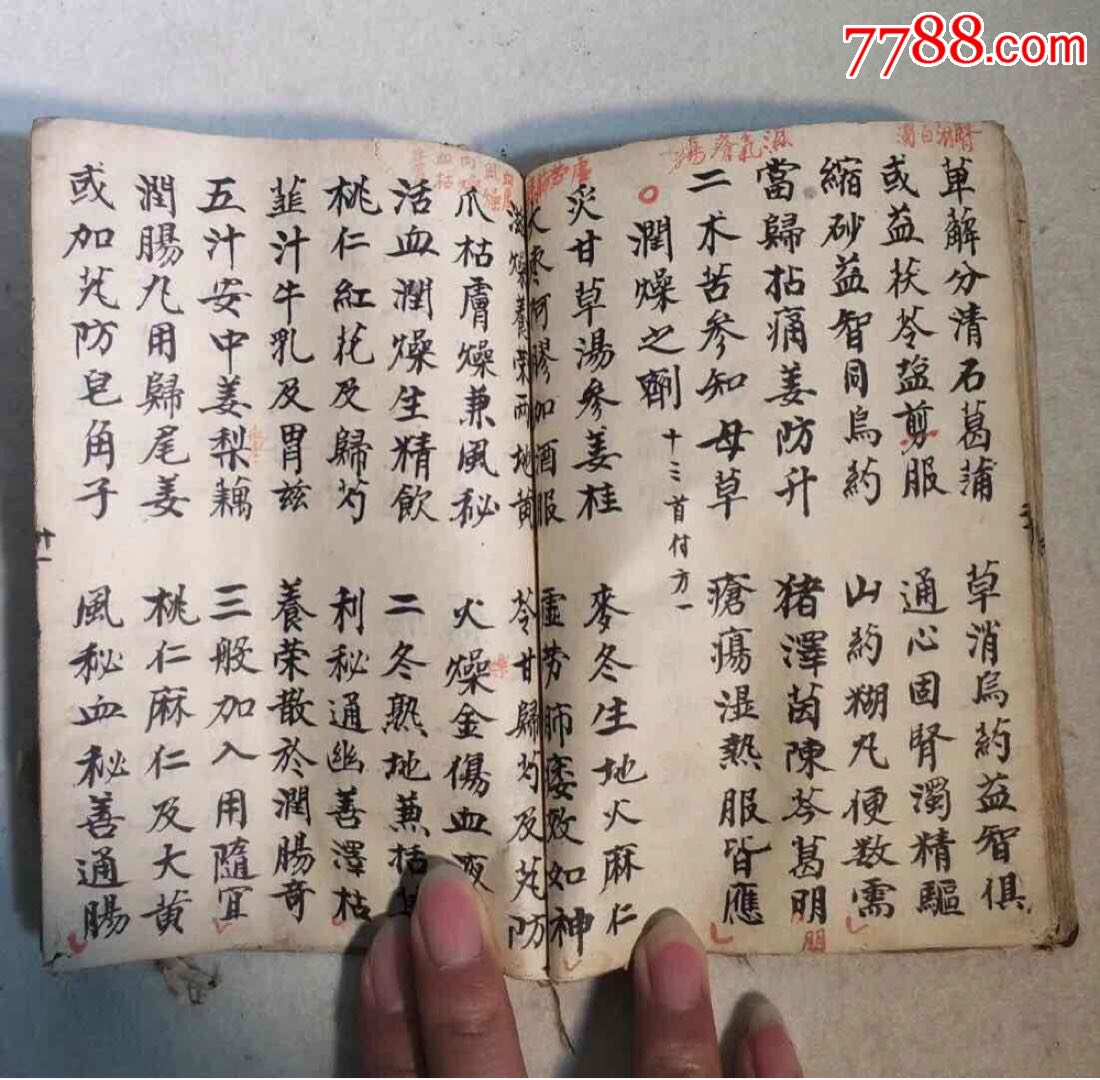 7788.com
萆薢分清石菖蒲
草消烏药益智俱
或益茯苓盐煎服
通心固腎濁精驅
縮砂益智同烏药
山药糊丸便数需
當歸拈痛羌防升
猪澤茵陳芩葛朋
朋
二术苦参知母草
瘡瘍湿熱服皆應
潤燥之劑
十三首付方一
炙甘草湯參姜桂
麥冬生地火麻仁
大枣阿膠加酒服
虚劳肺痿效如神
滋燥養荣兩地黄
芩甘歸芍及艽防
爪枯膚燥兼風秘
火燥金傷血液
活血潤燥生精飲
二冬熟地兼括
桃仁紅花及歸芍
利秘通幽善澤枯
韮汁牛乳及胃玆
養荣散於潤腸奇
五汁安中姜梨藕
三般加入用隨宜
潤腸丸用歸尾羌
桃仁麻仁及大黄
或加艽防皂角子
風秘血秘善通腸